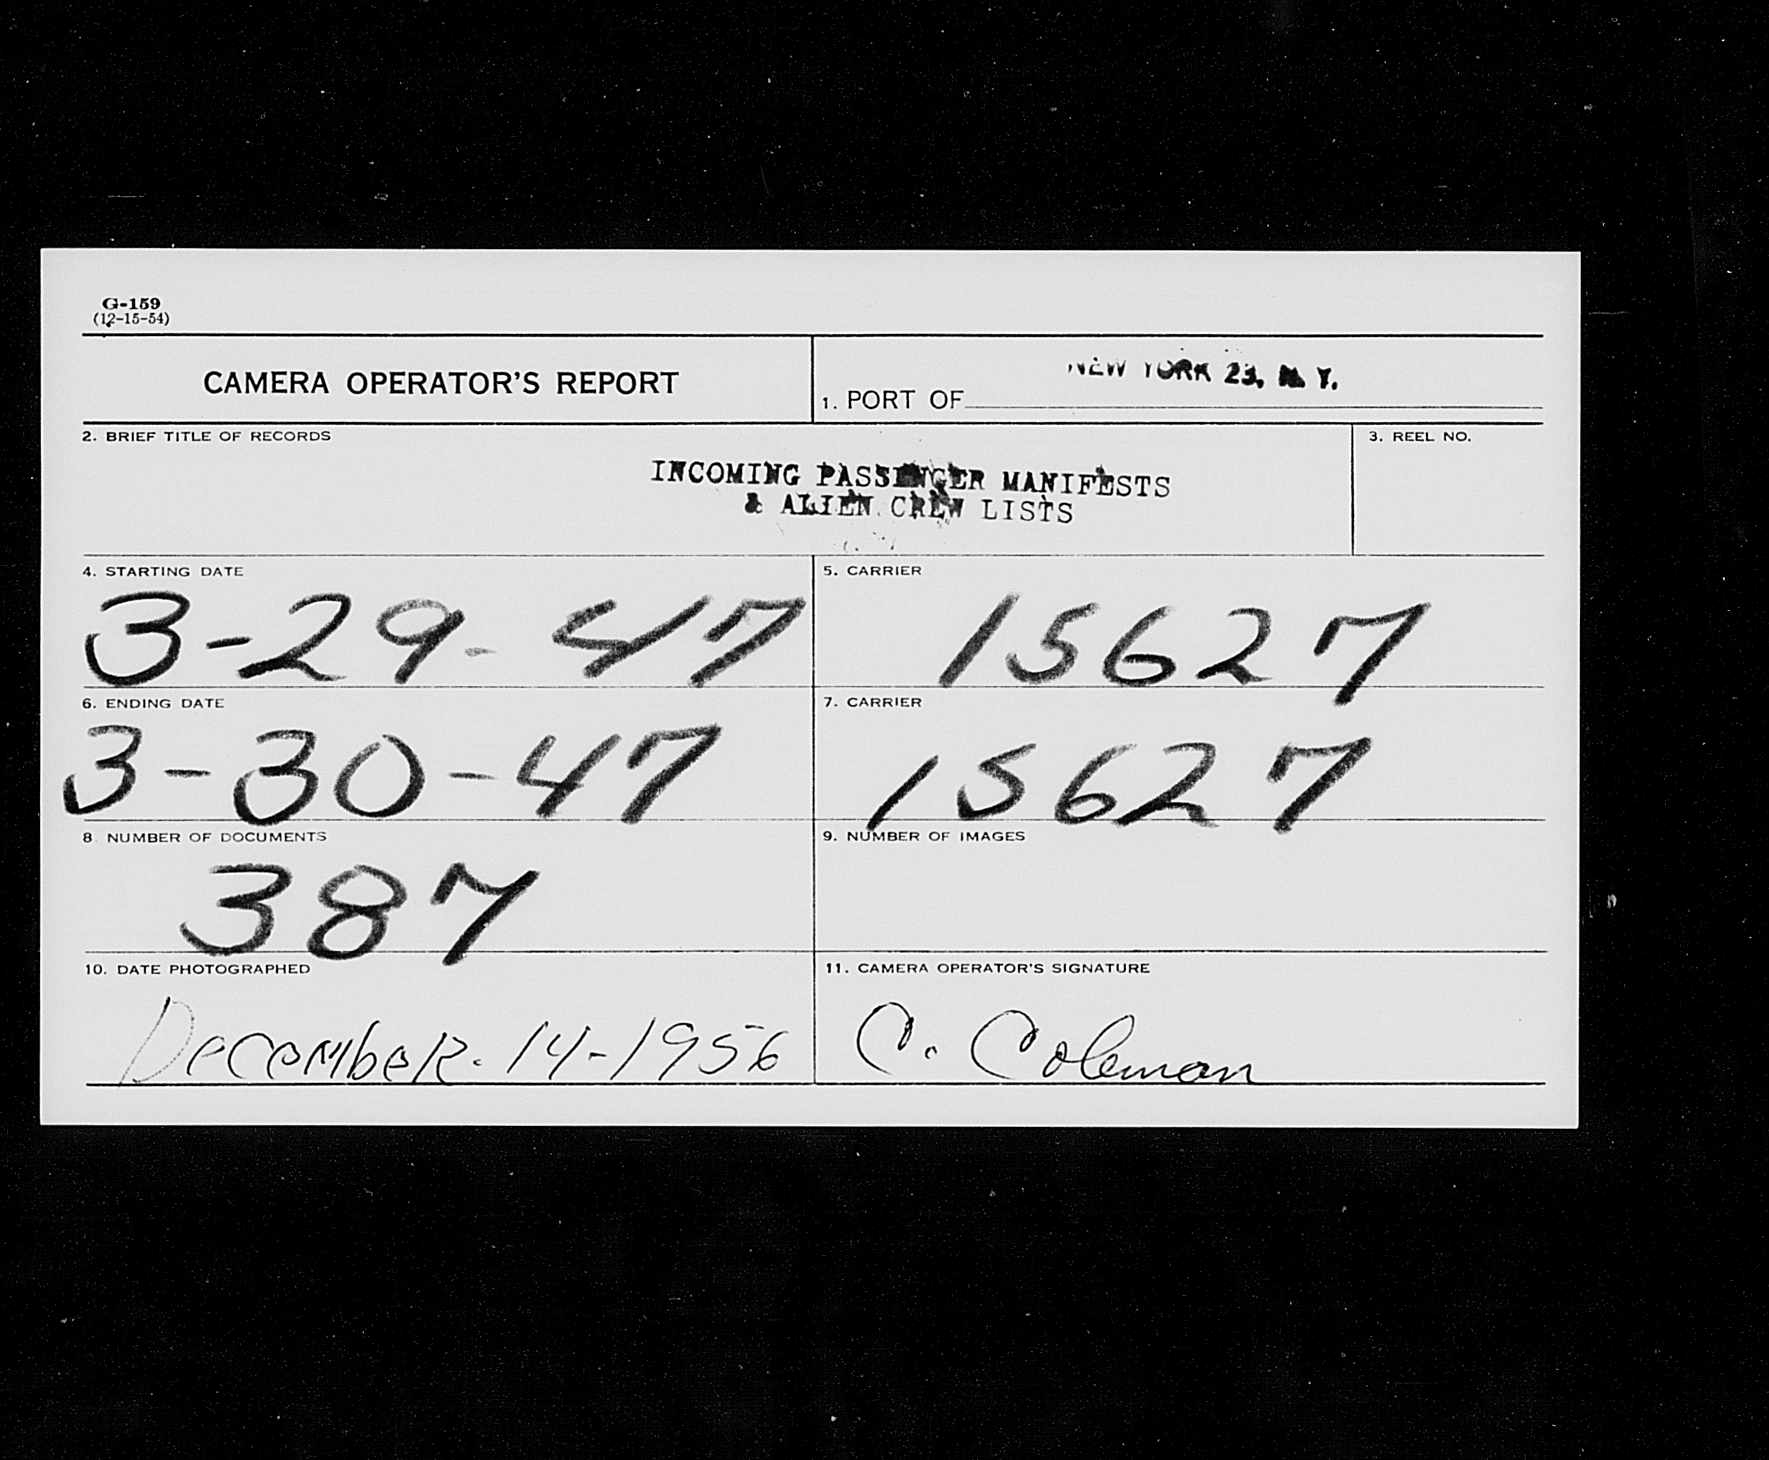 G-159
(12-15-54)
CAMERA OPERATOR'S REPORT
1. PORT OF NEW YORK 23, N. Y.
2. BRIEF TITLE OF RECORDS
INCOMING PASSENGER MANIFESTS
& ALIEN CREW LISTS
3. REEL NO.
4. STARTING DATE
3-29-47
5. CARRIER
15627
6. ENDING DATE
3-30-47
7. CARRIER
15627
8 NUMBER OF DOCUMENTS
387
9. NUMBER OF IMAGES
10. DATE PHOTOGRAPHED
December. 14-1956
11. CAMERA OPERATOR'S SIGNATURE
C. Coleman